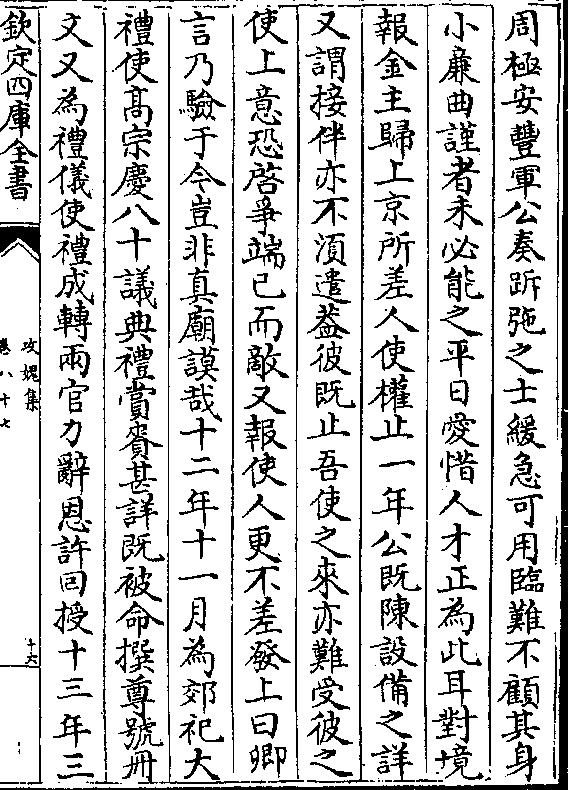 周極安豐軍公奏跅弛之士緩急可用臨難不顧其身
小廉曲謹者未必能之平日愛惜人才正為此耳對境
報金主歸上京所差人使權止一年公既陳設備之詳
又謂接伴亦不湏遣葢彼既止吾使之來亦難受彼之
使上意恐啓爭端已而敵又報使人更不差發上曰卿
言乃驗于今豈非真廟謨哉十二年十一月為郊祀大
禮使髙宗慶八十議典禮賞賚甚詳既被命撰尊號冊
文又為禮儀使禮成轉兩官力辭恩許回授十三年三
欽定四庫全書
攻媿集
卷八十七
十六